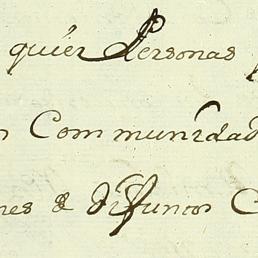 quier Personas
n Communidad
nes & difuntos C